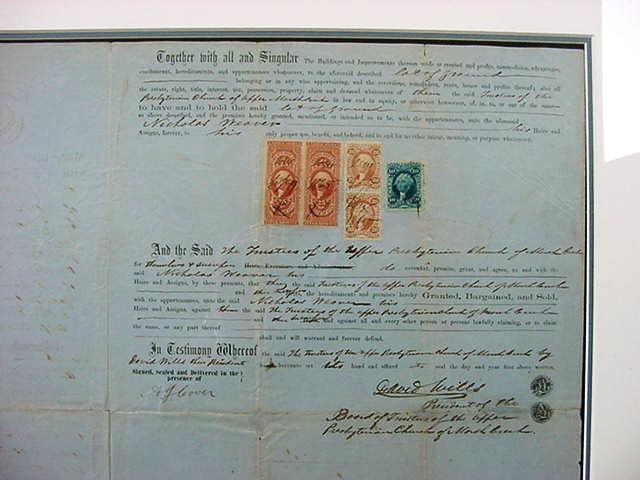 Together with all and Singular The Buildings and Improvements thereon made or erected and profits, commodities, advantages,
emoluments, hereditaments, and appurtenances whatsoever, to the aforesaid described lot of ground
belonging or in any wise appertaining, and the reversions, remainders, rents, issues and profits thereof; also all
the estate, right, title, interest, use, possession, property, claim and demand whatsoever of them the said Trustees of the
Presbyterian Church of Upper Marsh Creek in law and in equity, or otherwise howsoever, of, in, to, or out of the same
to have and to hold the said lot of ground
as above described, and the premises hereby granted, mentioned, or intended so to be, with the appurtenances, unto the aforesaid
Nicholas Weaver his Heirs and
Assigns, forever, to his only proper use, benefit, and behoof, and to and for no other intent, meaning, or purpose whatsoever.
And the Said The Trustees of the Upper Presbyterian Church of Marsh Creek
for themselves & successors Heirs, Executors, and do covenant, promise, grant, and agree, to and with the
said Nicholas Weaver his
Heirs and Assigns, by these presents, that they the said Trustees of the Upper Presbyterian Church of Marsh Creek
and the hereditaments and premises hereby Granted, Bargained, and Sold,
with the appurtenances, unto the said Nicholas Weaver his
Heirs and Assigns, against them the said The Trustees of the Upper Presbyterian Church of Marsh Creek
and against all and every other person or persons lawfully claiming, or to claim
the same, or any part thereof shall and will warrant and forever defend.
In Testimony Whereof the said The Trustees of the Upper Presbyterian Church of Marsh Creek by
David Wills their President hereunto set his hand and affixed seal the day and year first above written.
Signed, Sealed and Delivered in the
presence of
David Wills
President of the
Board of Trustees of the Upper
Presbyterian Church of Marsh Creek.